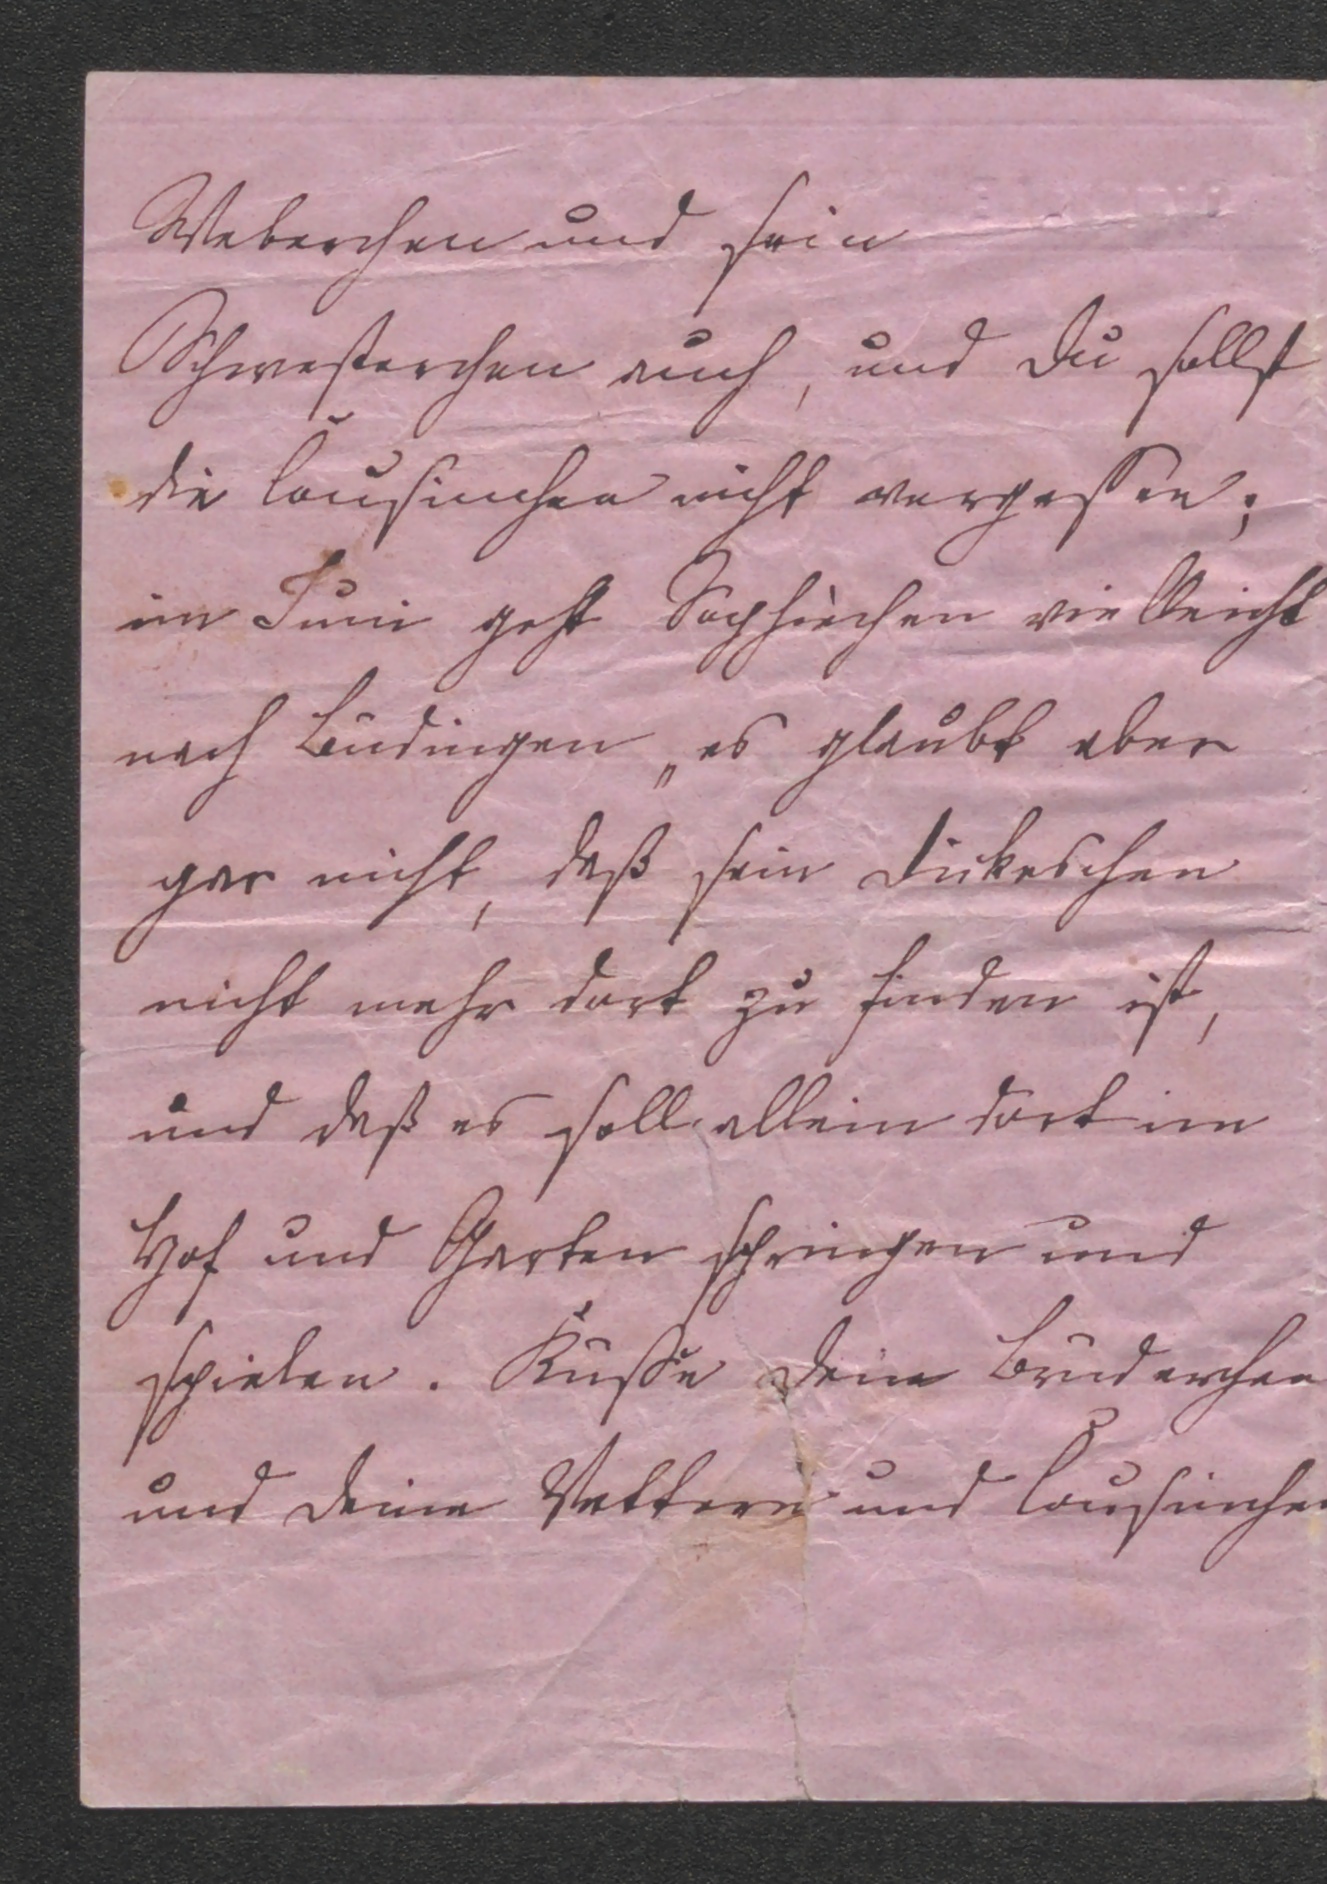 Weberchen und sein
Schwesterchen auch, und Du sollst
die Cousinchen nicht vergessen;
im Juni geht Sophiechen vielleicht
nach Büdingen „es glaubt aber
gar nicht, daß sein Dickeschen
nicht mehr dort zu finden ist,
und daß es soll allein dort im
Hof und Garten springen und
spielen. Küsse Dein Brüderchen
und Deine Vettern und Cousinchen